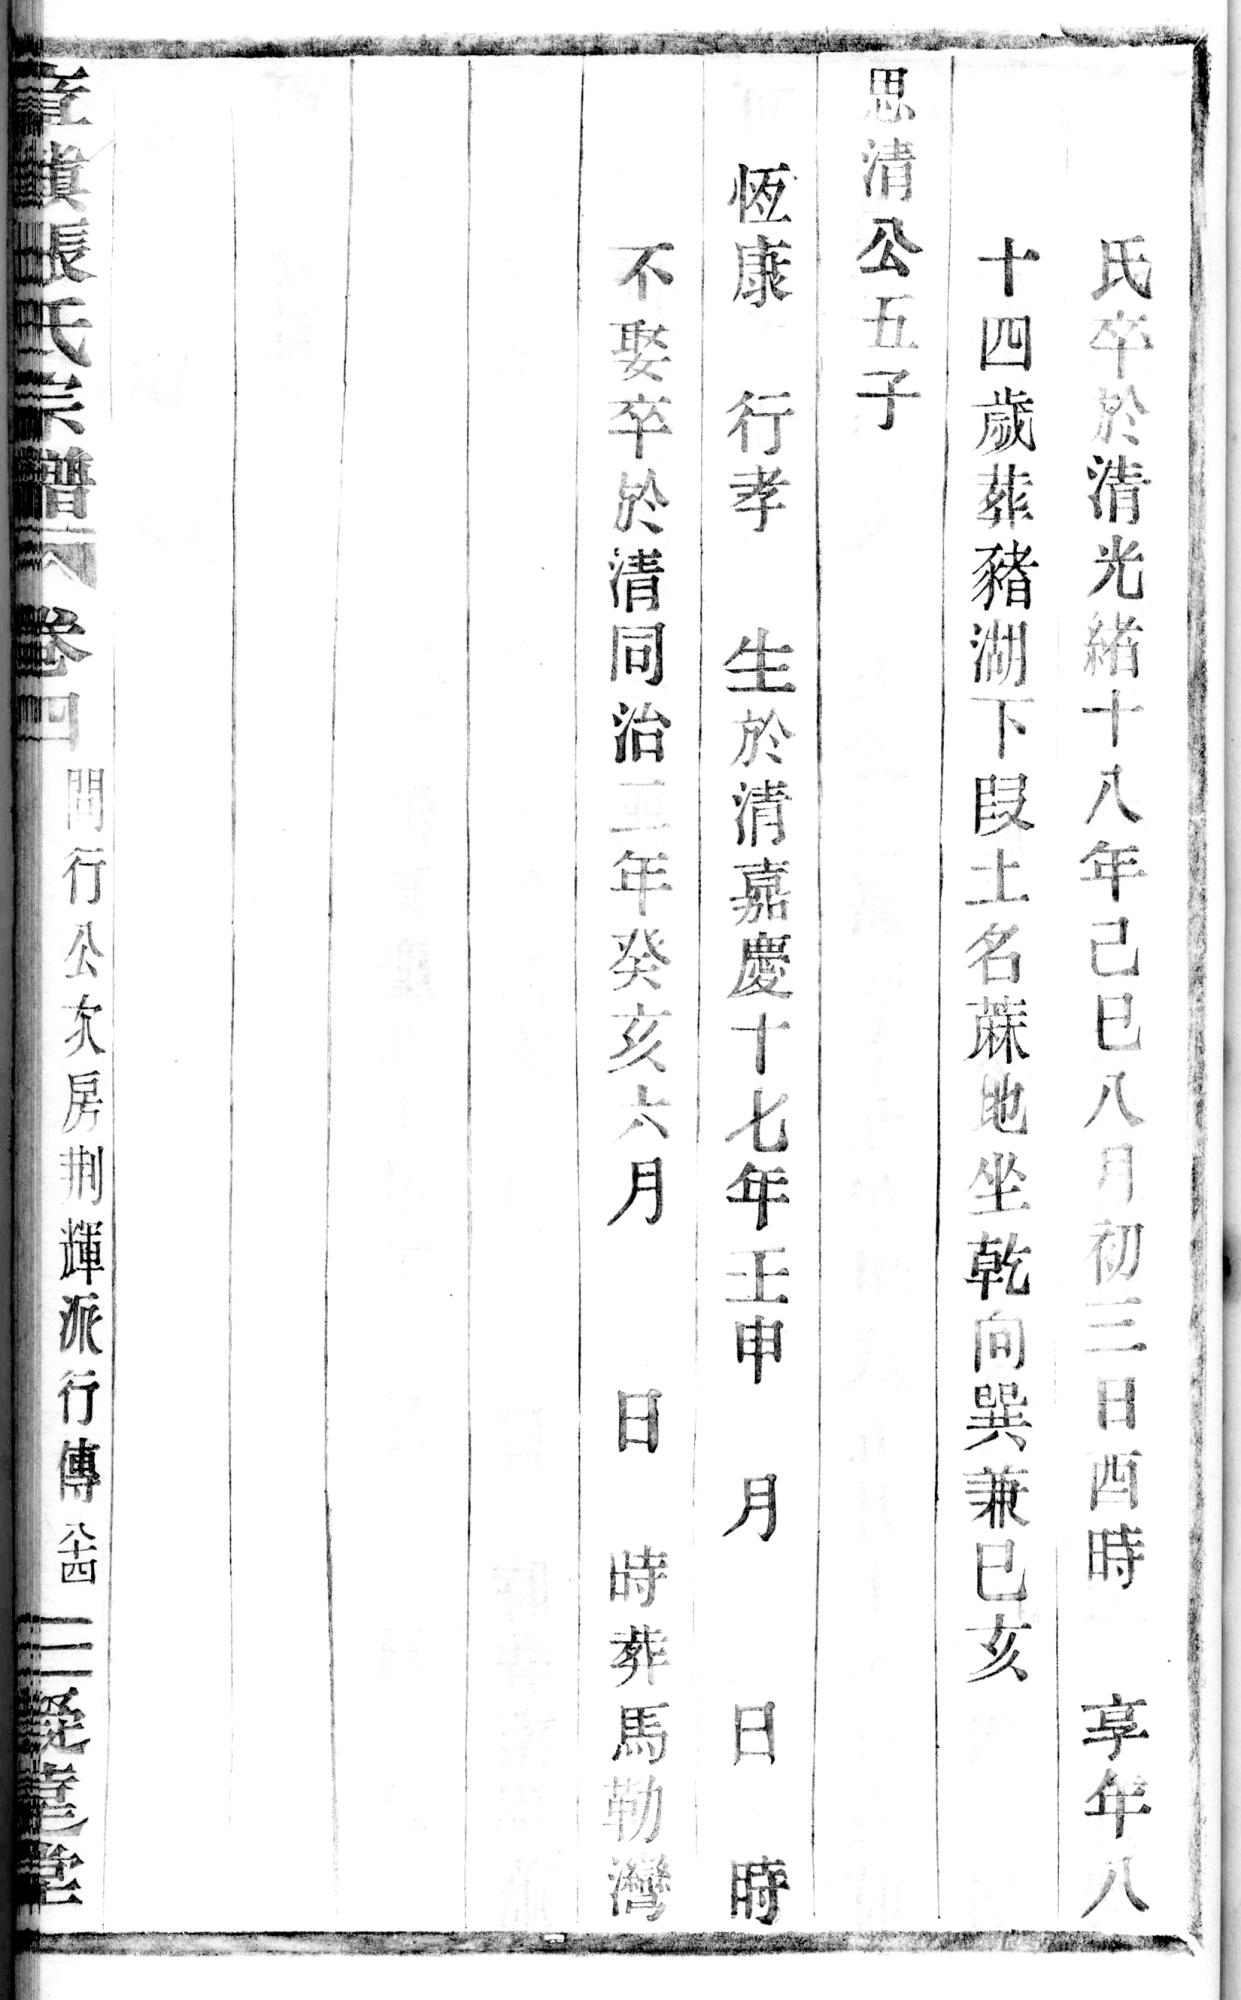 氏卒於清光緒十八年己巳八月初三日酉時　享年八
十四歲葬豬湖下段土名蔴地坐乾向巽兼巳亥
思清公五子
恆康　行孝　生於清嘉慶十七年壬申　月　　日　時
不娶卒於清同治二年癸亥六月　　日　時葬馬勒灣
張氏宗譜　卷四　問行公次房荆輝派行傳　八十四　三　堂